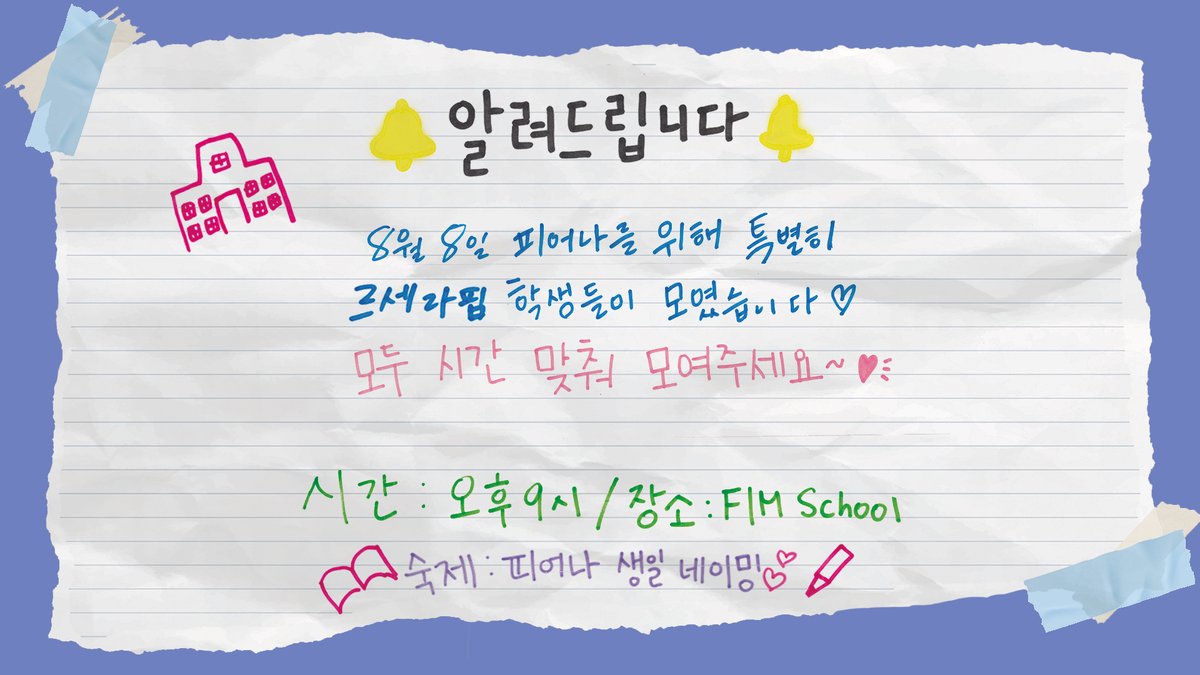 알려드립니다
8월 8일 피어나를 위해 특별히
르세라핌 학생들이 모였습니다♡
모두 시간 맞춰 모여주세요~♥
시간 : 오후 9시 / 장소 : FIM School
숙제 : 피어나 생일 네이밍